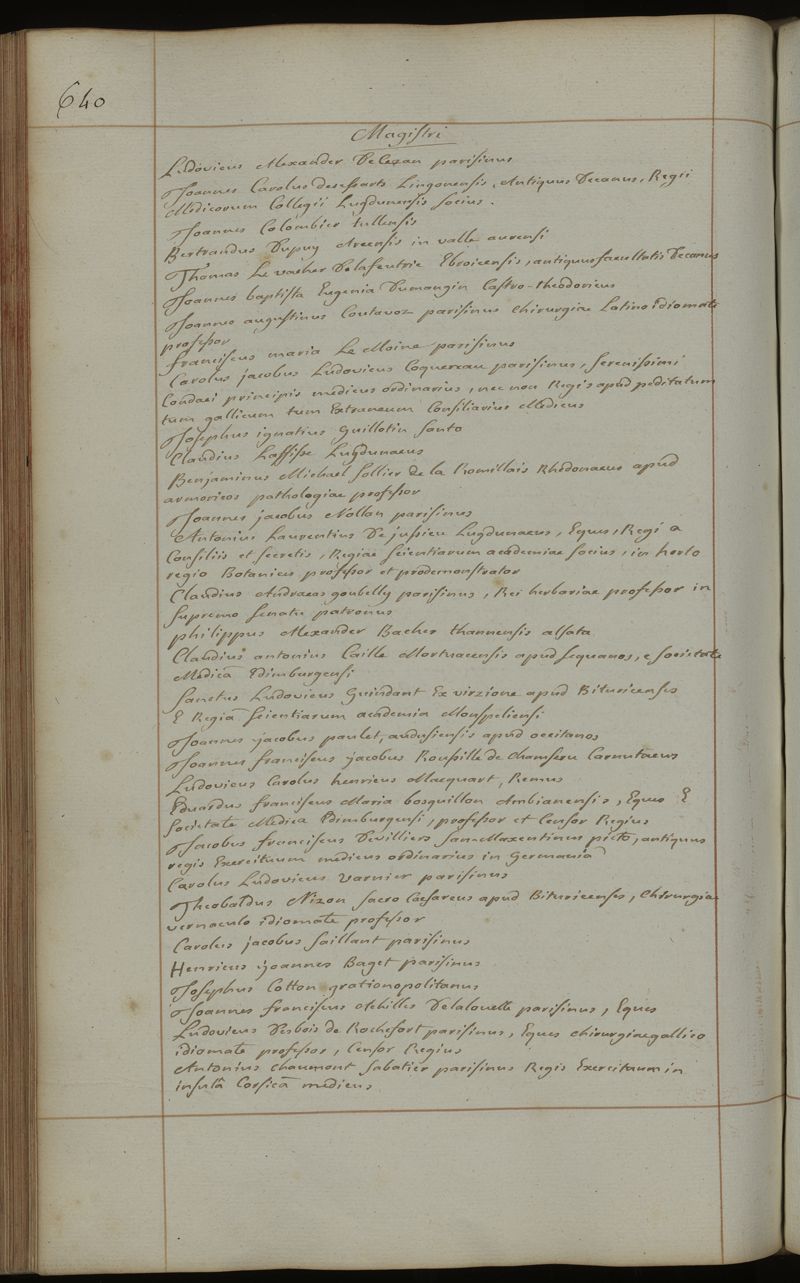 640
Magistri
Ludovicus Alexander Delezan parisinus
Joannes Carolus Desessarts Lingonensis, Antiquus Decanus, Regii
Medicorum Collegii Lugdunensis socius.
Joannes Colombier tullensis
Bertrandus Dupuy Areensis in valle aurensi
Thomas Le vacher Delafeutrie Ebroicensis, antiquus facultatis Decanus
Joannes baptista Eugenia Dumangin Castro-theodoricus
Joannes augustinus Coutavoz parisinus Chirurgiae Latino idiomate
professor
franciscus maria Le Moine parisinus
Carolus jacobus Ludovicus Coquereau parisinus, serenissimi
Condaei principis medicus ordinarius, nec non Regis apud peditatum
tum gallicum tum Extraneum Consiliarius Medicus
Josephus ignatius Guillotin santo
Claudius Laffisse Lugdunaeus
Benjaminus Michael Sollier de la Romillais Rhedonaeus apud
armoricos pathologiae professor
Joannes jacobus Nollan parisinus
Antonius Laurentius De jussieu Lugdunaeus, Eques, Regi a
Consiliis et secretis, Regiae scientiarum academiae socius, in horto
regio Botanicus professor et prodemonstrator
Claudius Andraeas goubelly parisinus, Rei herbariae professor in
supremo senatu patronus
philippus Alexander Bacher thannensis alsata
Claudius antonius Caille Mortuacensis apud sequanos, e societate
Medicâ Edimburgensi
Sanctus Ludovicus Guindant Ex virzione apud Bituricenses
E Regiâ scientiarum academia Monspeliensi
Joannes jacobus paulet, andusiensis apud occitanos
Joannes franciscus jacobus Roussille de Chamseru Carnutaeus
Ludovicus Carolus henricus Macquart, Remus
Eduardus franciscus Maria bosquillon Ambianensis, Eques E
societate Medica Edimburgensi, professor et Censor Regius
Jacobus franciscus Devilliers san-Maxentinus picto, antiquus
regis Exercituum medicus ordinarius in Germania
Carolus Ludovicus varnier parisinus
Theobaldus Nizon sacro Caesareus apud Bituricenses, Chirurgiae
vernaculo idiomate professor
Carolus jacobus saillant parisinus
Henricus ijoannes Baget parisinus
Josephus Cotton grationopolitanus
Joannes franciscus Achilles Delalouette parisinus, Eques
Ludovicus Desbois de Rochefort parisinus, Eques chirurgiae gallico
idiomate professor, Censor Regius
Antonius Chaumont sabatier parisinus Regis Exercituum in
insulâ Corsicâ medicus